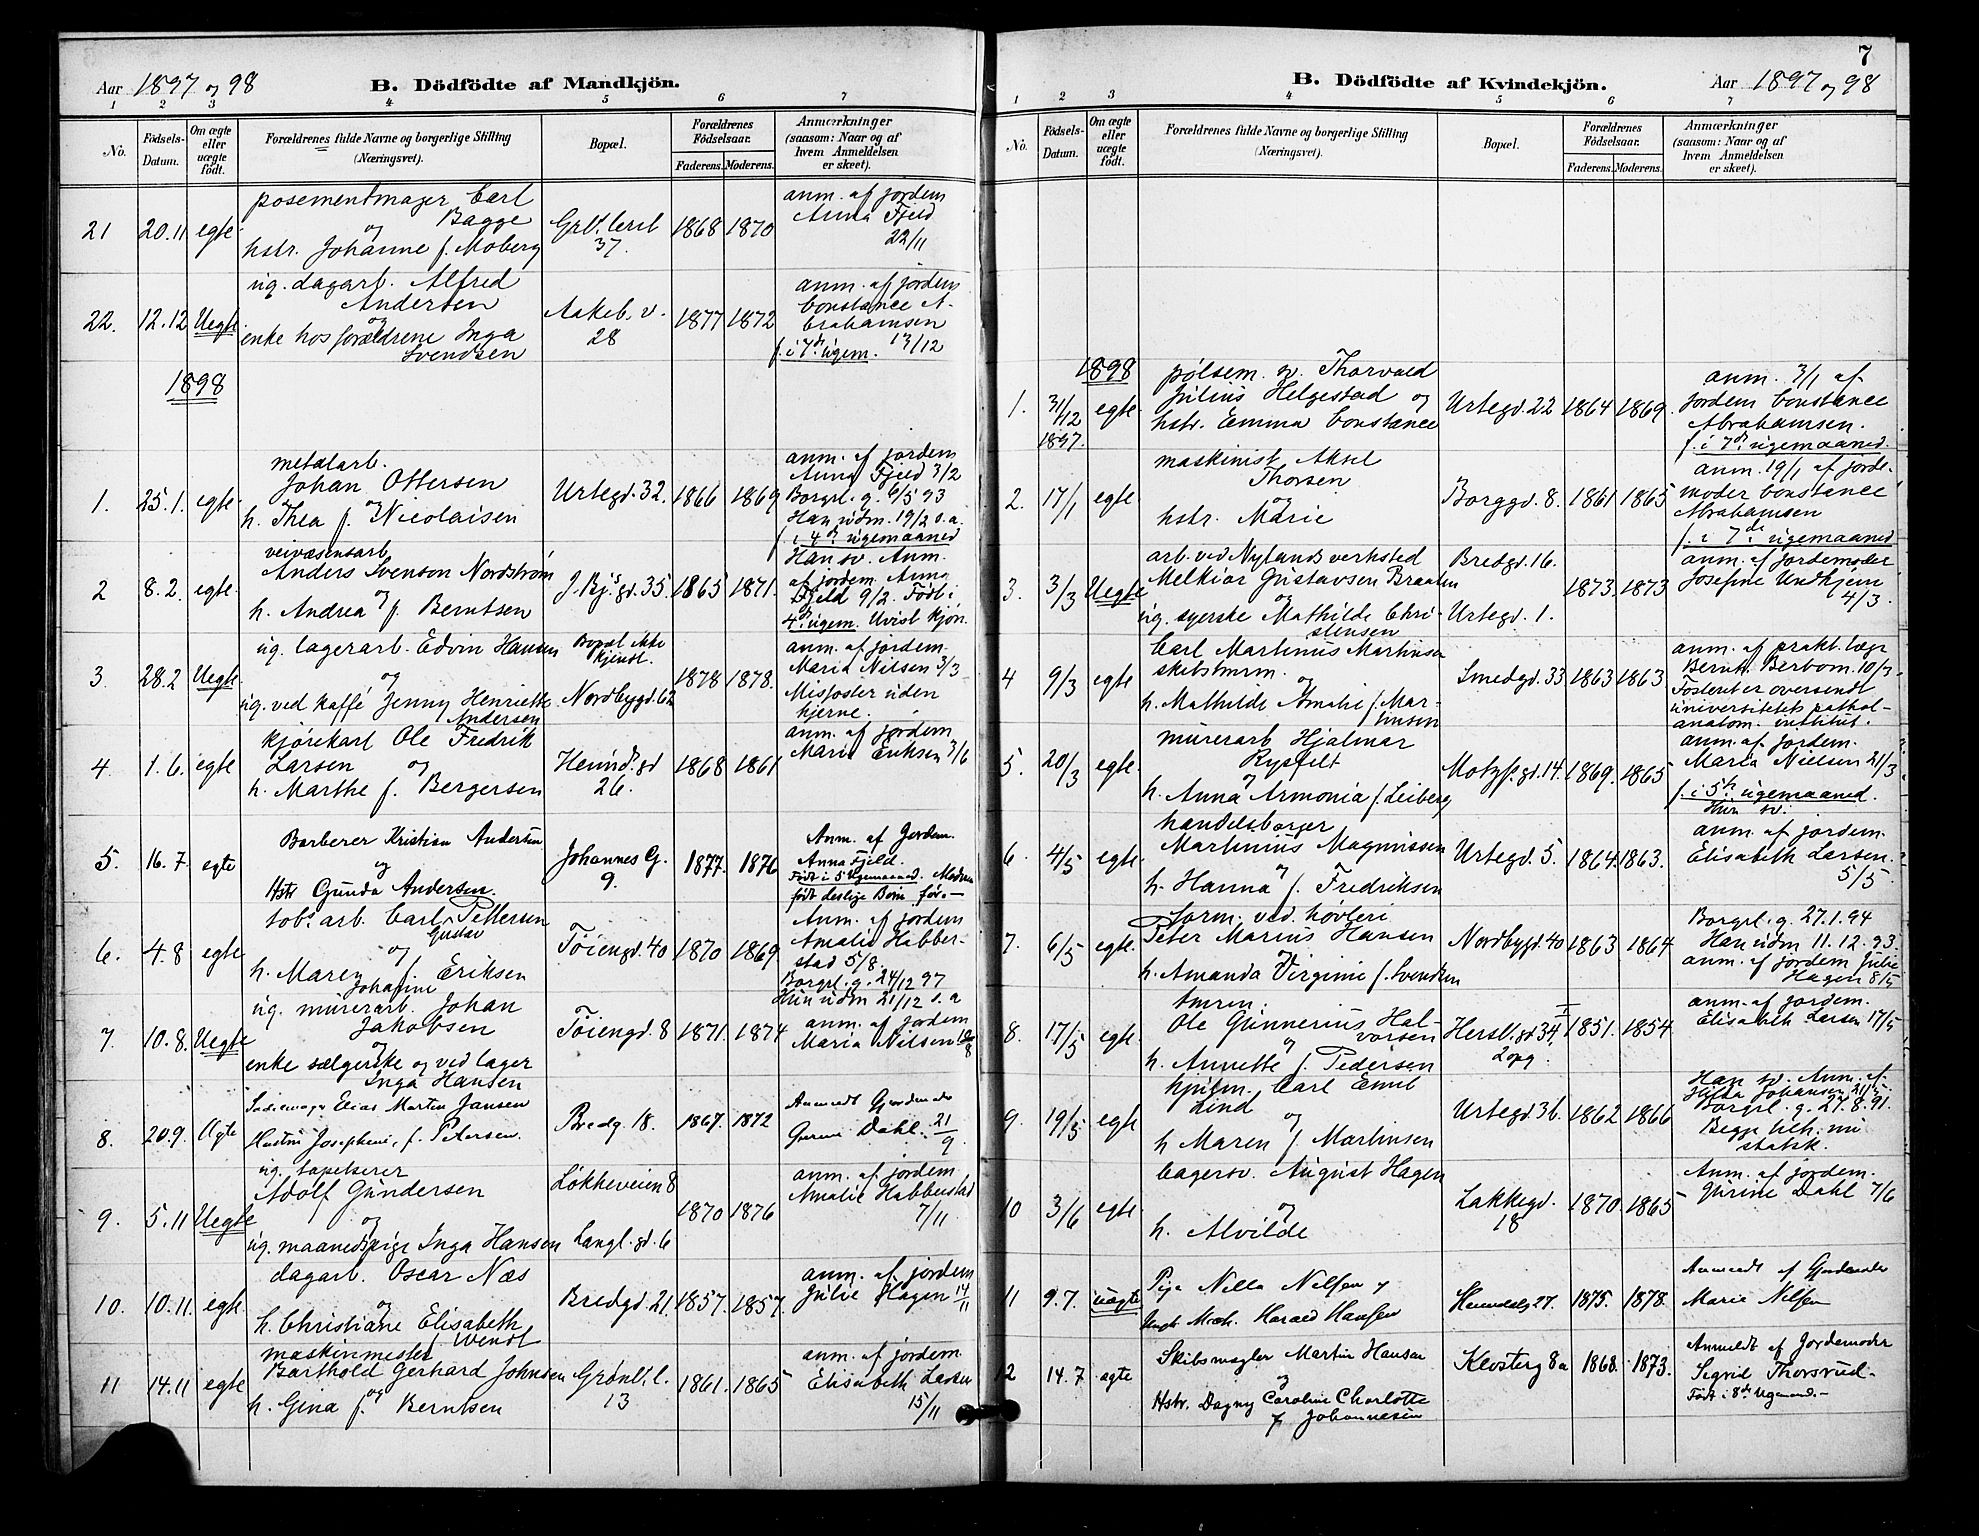 Aar 1897 og 98
B. Dödfödte af Mandkjön.
1 2 3 4 5 6 7
No.
Födsels-Datum.
Om ægte eller uægte födt.
Forældrenes fulde Navne og borgerlige Stilling
(Næringsvei).
Bopæl.
Forældrenes Födselsaar.
Faderens. Moderens.
Anmærkninger
(saasom: Naar og af
hvem Anmeldelsen
er skeet).
posementmager Carl
Bagge
og
hstr. Johanne f. Moberg
21 20.11 egte
37.
1868 1870
anm. af jordem
Anna Fjeld
22/11
ug. dagarb. Alfred
Andersen
og
enke hos forældrene Inga
Svendsen
22. 12.12 Uegte
Aakeb.v.
28
1877 1872
anm. af jordem
Constance A-
brahamsen
f. i 7de ugem. 13/12
1898
metalarb.
Johan Ottersen
og
h. Thea f. Nicolaisen
1. 25.1. egte
Urtegd. 32.
1866 1869
anm. af jordem
Anna Fjeld 3/2
Borgrl. g. 6/5 93
Han udm. 19/2 s.a.
f. i 4de ugemaaned
veivæsensarb
Anders Svenson Nordström
og
h. Andrea f. Berntsen
2 8.2. egte
J. Bj's gd. 35.
1865 1871.
Han sv. Anm.
af jordem. Anna
Fjeld 9/2. Født i
4de ugem. Uvist kjön.
ug. lagerarb. Edvin Hansen
og
ug. ved kaffé Jenny Henriette
Andersen
3. 28.2 Uegte
Bopæl ikke
kjendt.
Nordbygd. 62
1878 1878.
anm. af jordem.
Maria Nilsen 3/3
Misfoster uden
hjerne.
kjörekarl Ole Fredrik
Larsen og
h. Marthe f. Bergersen
4. 1.6. egte
Heimd. gd
26.
1868 1861
anm. af jordem
Marie Eriksen 3/6
Barberer Kristian Andersen
og
Hstr Gunda Andersen.
5. 16.7. egte
Johannes G.
9.
1877. 1876
Anm. af Jordem.
Anna Fjeld.
Født i 5 Ugemaaned. Moderen
født deslige Børn før.—
tobs arb. Carl Pettersen
Gustav
og
h. Maren f. Eriksen
Johafine
6. 4.8 egte
Töiengd. 40
1870 1869
Anm. af jordem
Amalie Habber-
stad 5/8.
Borgrl. g. 24/12 97
Hun udm 21/12 s.a
ug. murerarb. Johan
Jakobsen
og
enke sælgerske og ved lager
Inga Hansen
7. 10.8. Uegte
Töiengd. 8
1871. 1874
anm. af jordem
Maria Nilsen
Elias Martin Jansen
Hustru Josephine, f. Petersen.
8. 20.9. Ægte
Bredg 18.
1867. 1872
Anmeldt Gjordemode
Gurine Dahl. 21/9
ug. tapetserer
Adolf Gundersen
og
ug. maanedspige Inga Hansen
9. 5.11 Uegte
Lökkeveien 8
Langl. gd. 6
1870 1876
anm. af jordem
Amalie Habberstad
7/11.
dagarb. Oscar Næs
og
h. Christiane Elisabeth
f. Wendt
10. 10.11. egte
Bredgd. 21.
1857. 1857.
anm. af jordem
Julie Hagen 14/11
maskinmester
Barthold Gerhard Johnsen
og
h. Gina f. Berntsen
11 14.11 egte
Grönl. l.
13
1861. 1865
anm. af jordem.
Elisabeth Larsen
15/11
7
B. Dödfödte af Kvindekjön.
Aar 1897 og 98
1 2 3 4 5 6 7
No.
Födsels-Datum.
Om ægte eller uægte födt.
Forældrenes fulde Navne og borgerlige Stilling
(Næringsvei).
Bopæl.
Forældrenes Födselsaar.
Faderens. Moderens.
Anmærkninger
(saasom: Naar og af
hvem Anmeldelsen
er skeet).
1898
pölsem. sv. Thorvald
Julius Helgestad og
hstr. Emma Constance
1. 31/12 1897. egte
Urtegd. 22
1864 1869.
anm. 3/1 af
jordem Constance
Abrahamsen.
f. i 7de ugemaaned.
maskinist Aksel
Thorsen
og
hstr. Marie
2. 17/1 egte
Borggd. 8.
1861 1865
anm. 19/1 af jorde-
moder Constance
Abrahamsen
f. i 7de ugemaaned
arb. ved Nylands verksted
Melkior Gustavsen Braaten
og
ug. syerske Mathilde Chri-
stensen
3. 3/3 Uegte
Bredgd. 16.
Urtegd. 1.
1873. 1873
anm. af jordemoder
Josefine Undhjem
4/3.
Carl Martinius Martinsen
skibstmrm. og
h. Mathilde Amalie f. Mar-
tinsen
4 9/3 egte
Smedgd. 33
1863 1863
anm. af prakt. læge
Bernh. Berbom. 10/3
Fosteret er oversendt
universitetets pathol-
anatom. institut.
murerarb Hjalmar
Rysfelt
og
h. Anna Armonia f. Leiberg
5. 20/3 egte.
Motzf. gd. 14.
1869. 1865
anm. af jordem.
Maria Nielsen 21/3
f. i 5te ugemaaned.
Hun sv.
handelsborger
Martinius Magnussen
og
h. Hanna f. Fredriksen
6. 4/5 egte.
Urtegd. 5.
1864. 1863.
anm. af jordem.
Elisabeth Larsen.
5/5.
form. ved hövleri
Peter Marius Hansen
og
h. Amanda Virginie f. Svendsen
7. 6/5 egte.
Nordbygd. 40
1863 1864
Borgrl. g. 27.1.94
Han udm 11.12.93.
anm. af jordem Julie
Hagen 8/5
tmrm.
Ole Gunnerius Hal-
vorsen
og
h. Annette f. Pedersen
8. 17/5 egte.
Hersl. gd. 34,
2 opg.
1851. 1854
anm. af jordem.
Elisabeth Larsen 17/5
hjulm. Carl Emil
Lind
og
h Maren f. Martinsen
9. 19/5 egte
Urtegd. 36.
1862 1866
Han sv. Anm. af
Hilda Johansen 21/5
Borgrl. g. 27.8.91.
Begge tilh. nu
statsk.
bagersv. August Hagen
og
h. Alvilde
10 3/6 egte.
Lakkegd.
18
1870. 1865
Anm. af jordem.
Gurine Dahl 7/6
Pige Nilla Nilsen og
Ungk. Mich. Harald Hansen
11 9.7. uægte
Heimdalsg 27.
1875. 1878.
Anmeldt af Gjordemoder
Marie Nilsen
Skibsmægler Martin Hansen
og
Hstr. Dagny Caroline Charlotte
f. Johannesen
12 14.7 ægte
Klosterg 8a
1868. 1873.
Anmeldt af Jordemoder
Sigrid Thorsrud.
Født i 8de Ugemaand.—